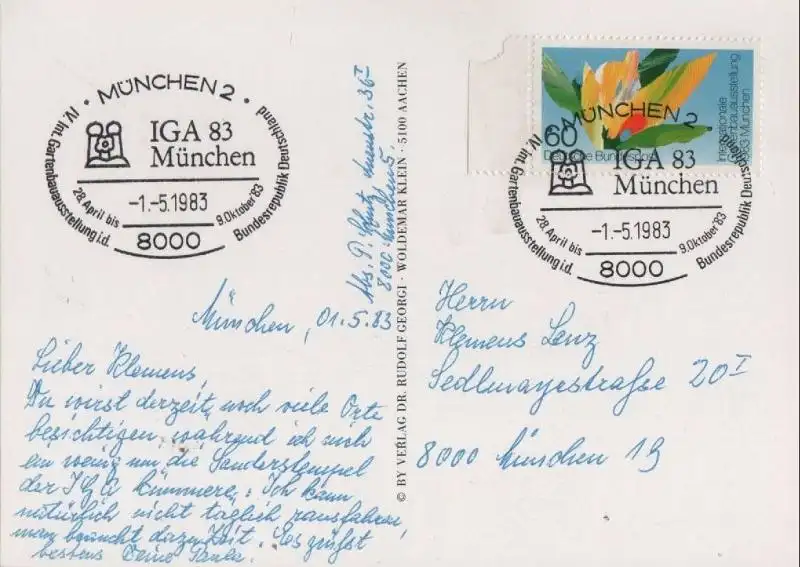 · MÜNCHEN 2 ·
IV. Int. Gartenbauausstellung i.d. Bundesrepublik Deutschland
IGA 83
München
28. April bis 9. Oktober 83
-1.-5.1983
8000
60
Deutsche Bundespost
Internationale
Gartenbauausstellung
1983 München
· MÜNCHEN 2 ·
IV. Int. Gartenbauausstellung i.d. Bundesrepublik Deutschland
IGA 83
München
28. April bis 9. Oktober 83
-1.-5.1983
8000
Abs. P. 36 I
8000 München 5
© BY VERLAG DR. RUDOLF GEORGI · WOLDEMAR KLEIN · 5100 AACHEN
München, 01.5.83
Lieber Klemens,
Du wirst derzeit noch viele Orte
besichtigen, während ich mich
ein wenig um die Sonderstempel
der IGA kümmere. Ich kann
natürlich nicht täglich rausfahren,
man braucht dazu Zeit. Es grüßt
bestens Deine Paula.
Herrn
Klemens Lenz
Sedlmayrstraße 20 I
8000 München 19